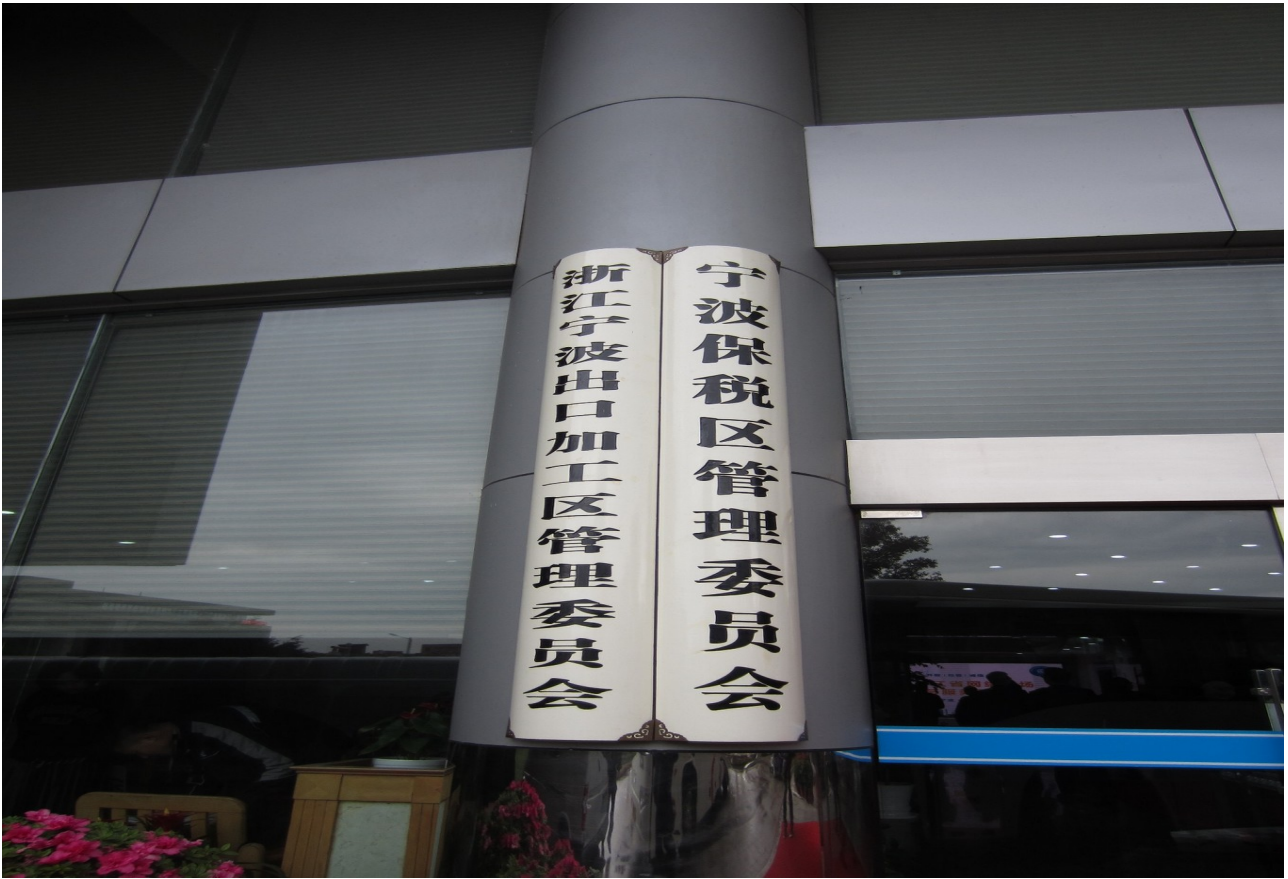 宁波保税区管理委员会
浙江宁波出口加工区管理委员会